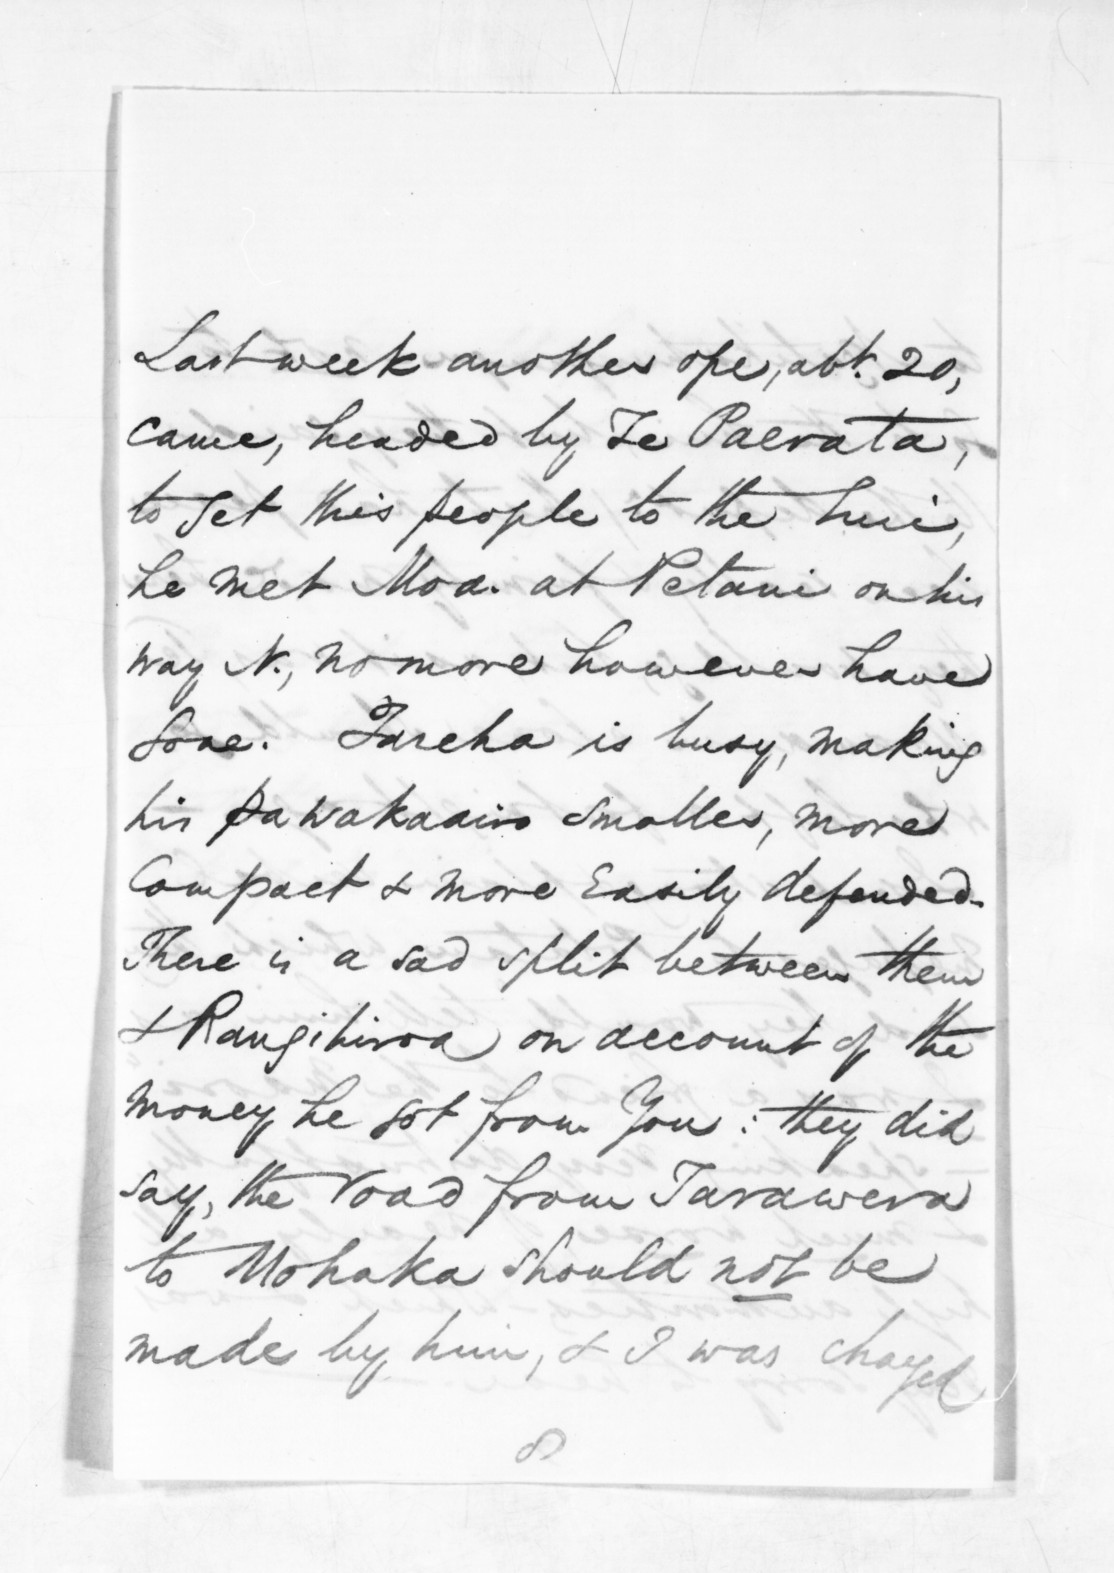 Last week another ope, abt. 20,
came, headed by Te Paerata,
to get this people to the hui,
he met Moa. at Petani on his
way N., no more however have
gone. Tareha is busy, making
his pa wakaairo smaller, more
Compact & more Easily defended.
There is a sad split between them
& Rangihiroa on account of the
money he got from You: they did
say, the road from Tarawera
to Mohaka should not be
made by him, & I was charged
8